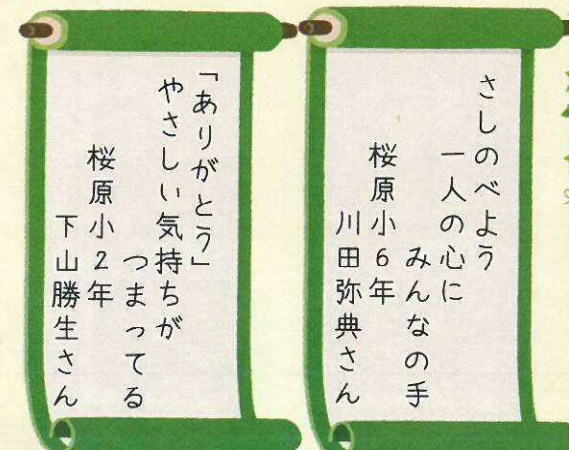 さしのべよう
一人の心に
みんなの手
桜原小6年
川田弥典さん
「ありがとう」
やさしい気持ちが
つまってる
桜原小2年
下山勝生さん